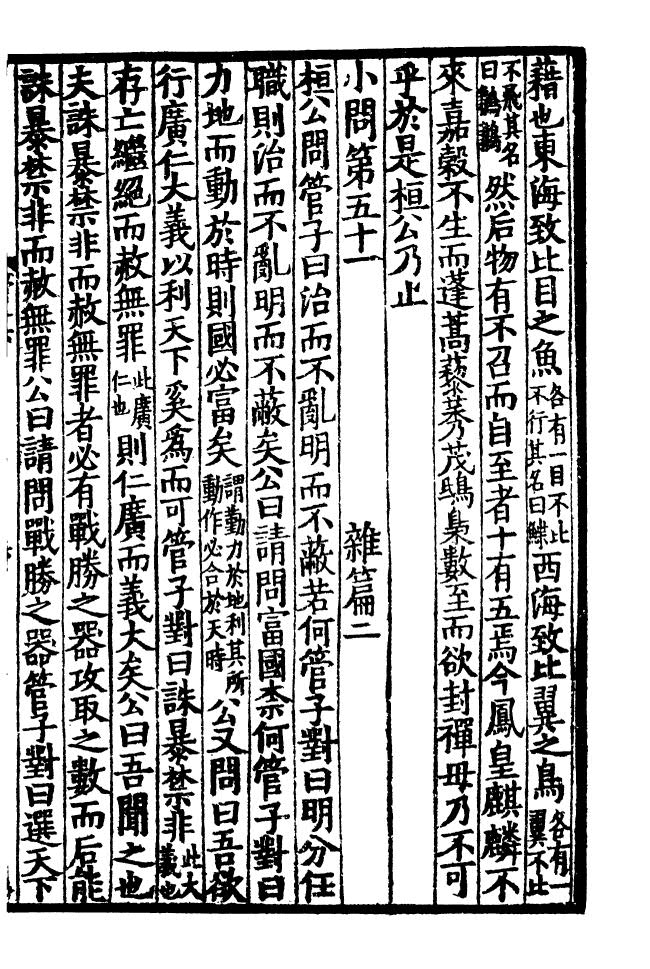 藉也東海致比目之魚各有一目不比不行其名曰鰈西海致比翼之鳥各有一翼不比
不飛其名曰鶼鶼然后物有不召而自至者十有五焉今鳳皇麒麟不
來嘉穀不生而蓬蒿藜莠茂鴟梟數至而欲封禪毋乃不可
乎於是桓公乃止
小問第五十一 雜篇二
桓公問管子曰治而不亂明而不蔽若何管子對曰明分任
職則治而不亂明而不蔽矣公曰請問富國柰何管子對曰
力地而動於時則國必富矣謂勤力於地利其所動作必合於天時公又問曰吾欲
行廣仁大義以利天下奚爲而可管子對曰誅暴禁非此大義也
存亡繼絕而赦無罪此廣仁也則仁廣而義大矣公曰吾聞之也
夫誅暴禁非而赦無罪者必有戰勝之器攻取之數而后能
誅暴禁非而赦無罪公曰請問戰勝之器管子對曰選天下